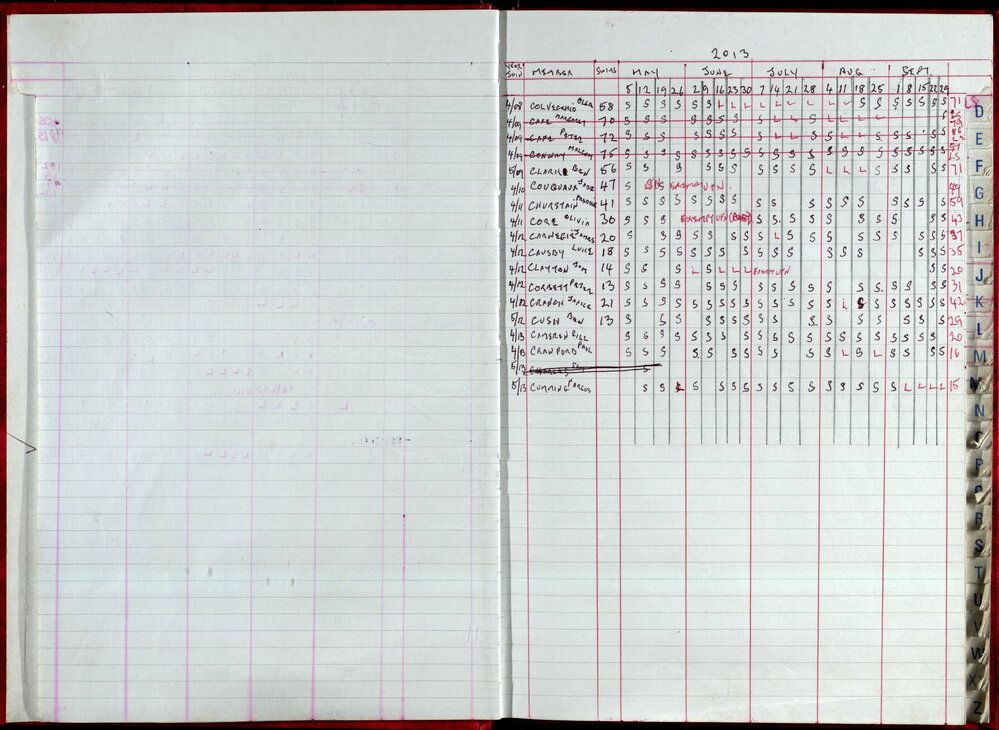 2013
YEAR JOIN MEMBER SWIMS MAY JUNE JULY AUG SEPT.
5 12 19 26 2 9 16 23 30 7 14 21 28 4 11 18 25 1 8 15 22 29
4/08 COLVECCHIO OLGA 58 S S S S S S L L L L L L L L L S S S S S S S 71 LS
4/09 CARR MARGARET 70 S S S S S S S S L L L L L L S
4/09 CARR PETER 72 S S S S S S S S L L S S L L S S S S
4/09 CONWAY MALCOLM 75 S S S S S S S S S S S S S S S S S S S S S S
5/09 CLARKE BEN 56 S S S S S S S S S S L L L S S S S S 71
4/10 COUQUAUX JADE 47 S 49
4/11 CHURSTAIN 41 S S S S S S S S S S S S S S S S S S S 59
4/11 CORE OLIVIA 30 S S S S S S S S S S S S S S 43
4/12 CARNEGIE JAMES 20 S S S S S S S S L S S S S S S S S S 37
4/12 CAUSBY LUKE 18 S S S S S S S S S S S S S S S S S S 35
4/12 CLAYTON TIM 14 S S S L S L L L EXEMPTION S S 20
4/12 CORBETT PETER 13 S S S S S S S S S S S S S S S S S S 31
4/02 CRANCH JANICE 21 S S S S S S S S S S S S S S L S S S S S S S 42
5/12 CUSH BEN 13 S S S S S S S S S S S S S S S S 29
4/13 CAMERON BILL S S S S S S S S S S S S S S S S S S S S 20
4/13 CRAWFORD PAUL S S S S S S S S S S S L S L S S S S 16
5/13 CHARLES S
5/13 CUMMING FERGUS S S L S S S S S S S S S S S S S L L L L 15
D
E
F
G
H
I
J
K
L
M
N
P
R
S
T
U
V
W
X
Z